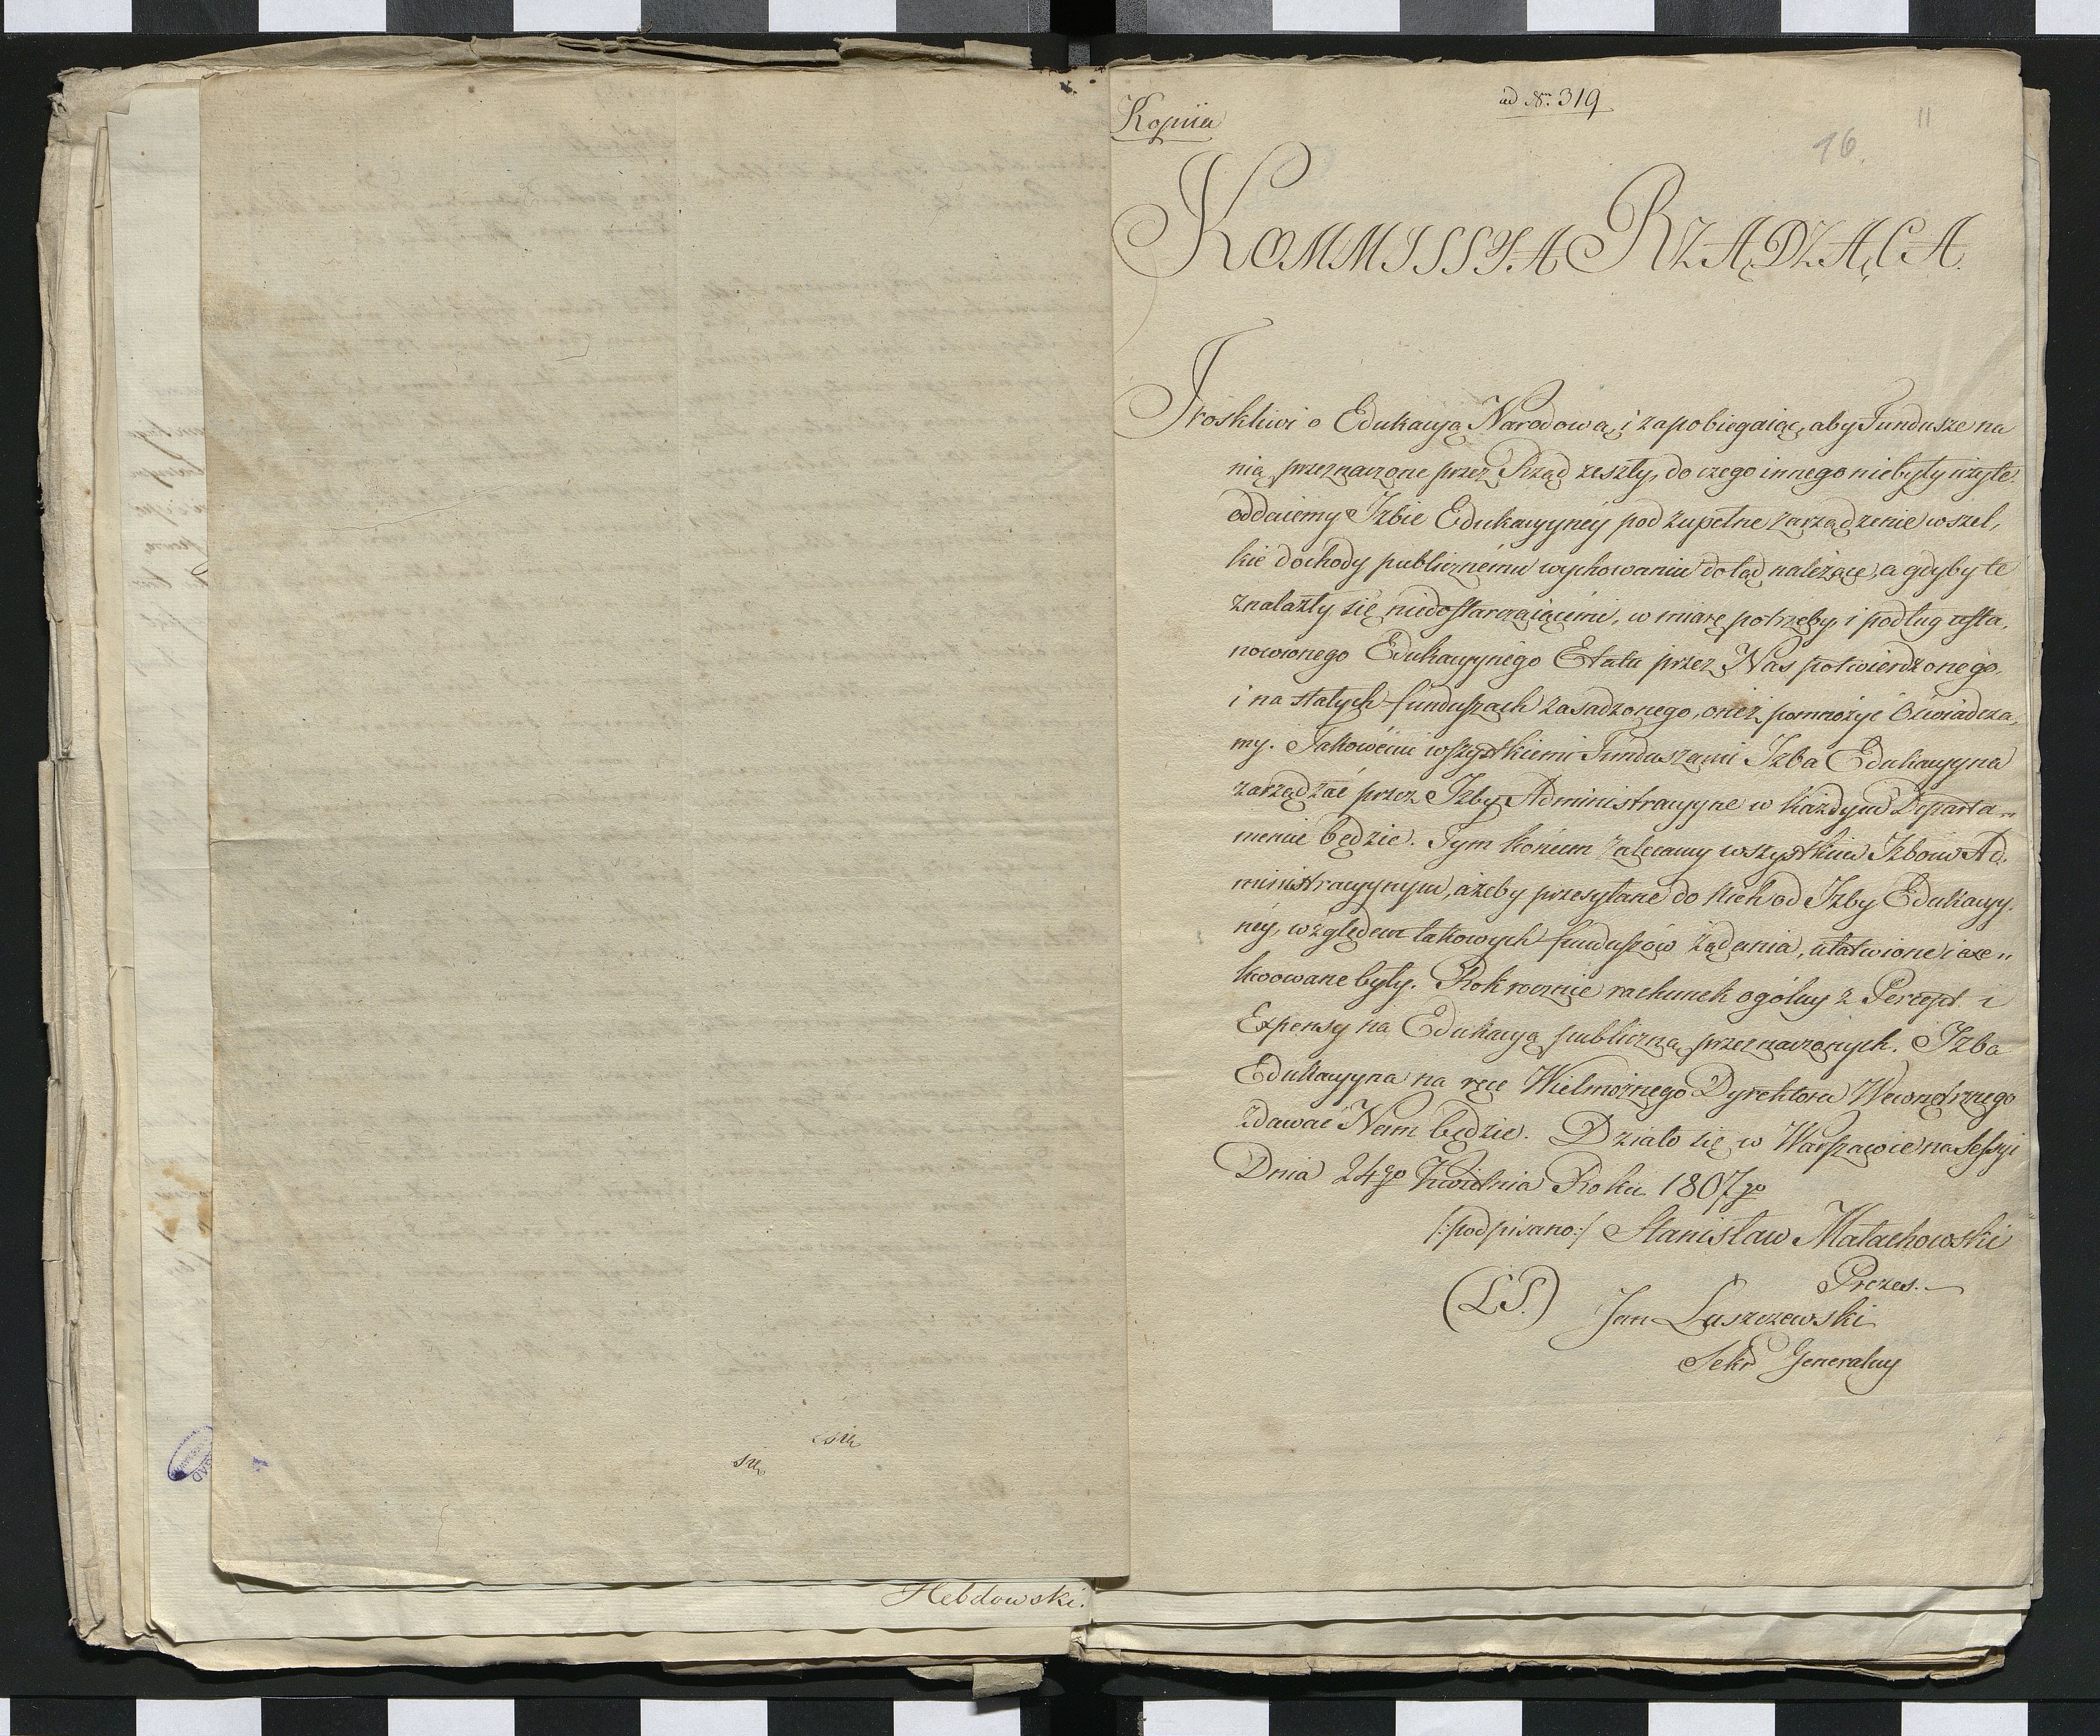 Hebdowski.
Kopiia
ad Nrm. 319
11
16.
KOMMISSYA RZĄDZĄCA.
Troskliwi o Edukacyą Narodową, i zapobiegaiąc, aby Fundusze na
nią przeznaczone przez Rząd zeszły, do czego innego niebyły użyte.
oddaiemy Izbie Edukacyynéy pod zupełne zarządzenie wszel,
kie dochody publicznému wychowaniu dotąd należące, a gdyby te
znalazły się niedostarczaiącémi, w miarę potrzeby i podług usta,
nowionego Edukacyynégo Etatu przez Nas potwierdzonego,
i na stałych funduszach zasadzonego, onéż pomnożyć oświadcza,
my. Takowémi wszystkiemi Funduszami Izba Edukacyyna
zarządzać przez Izby Administracyyne w każdym Departa„
mencie będzie. Tym końcem zalecamy wszystkim Izbom Ad,
ministracyynym, ażeby przesyłane do Nich od Izby Edukacyy,
néy, względem takowych funduszów żądania, ułatwione i exe„
kwowane były. Rok rocznie rachunek ogólny z Percept i
Expensy na Edukacyą publiczną przeznaczonych. Izba
Edukacyyna na ręce Wielmożnego Dyrektora Wewnętrznego
zdawać Nam będzie. Działo się w Warszawie na Sessyi
Dnia 24go Kwietnia Roku 1807go
/:podpisano:/ Stanisław Małachowski
Prezes.
(LS.) Jan Łuszczewski
Sekr Generalny